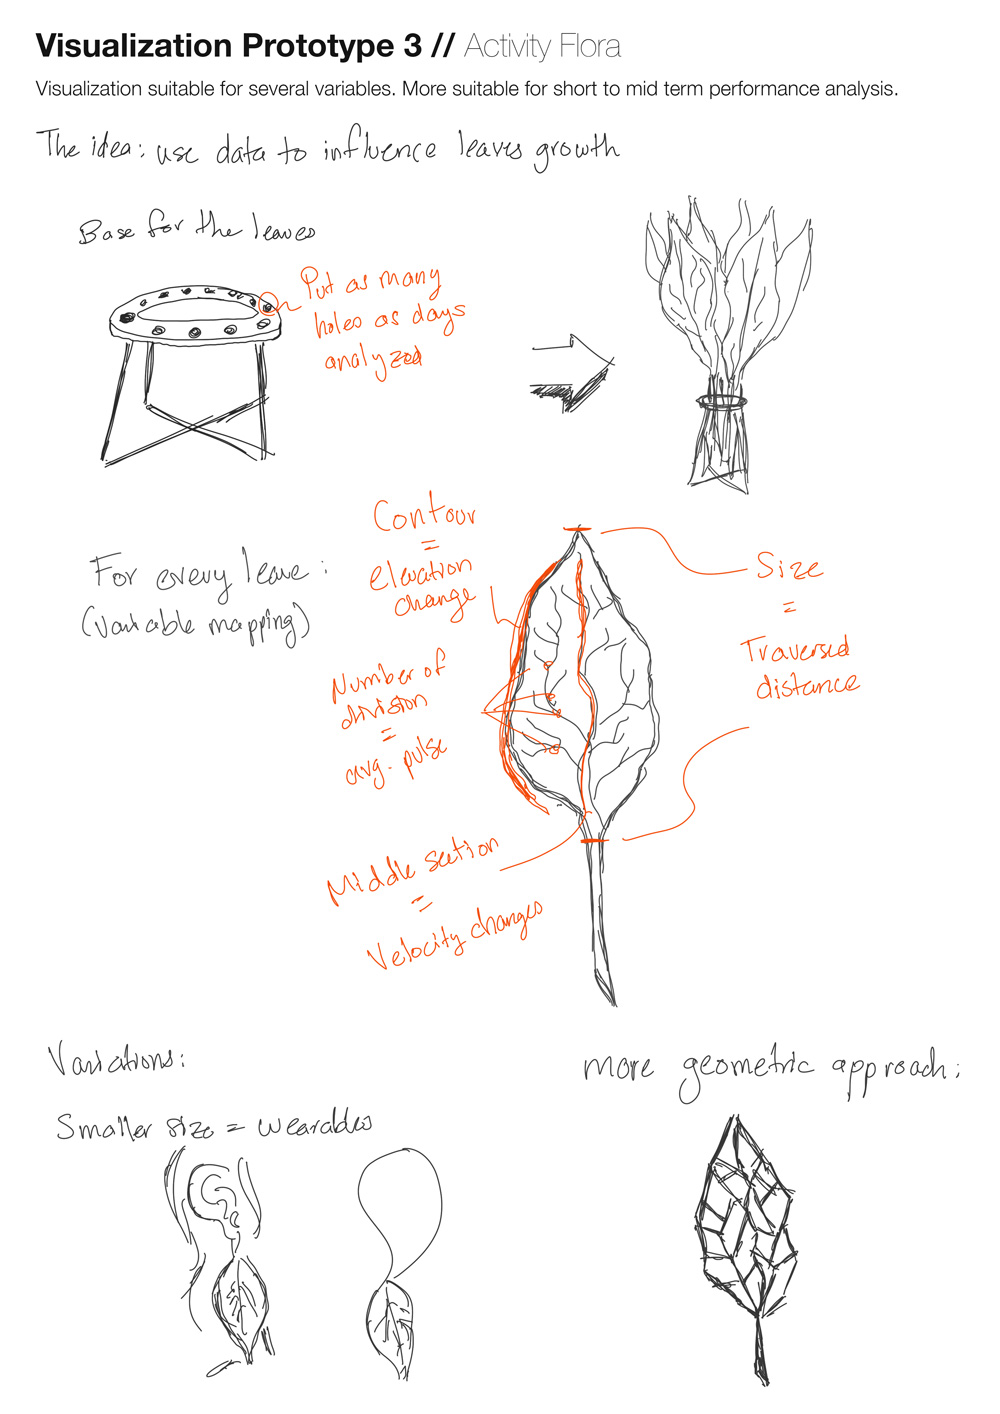 Visualization Prototype 3 // Activity Flora
Visualization suitable for several variables. More suitable for short to mid term performance analysis.
The idea: use data to influence leaves growth
Base for the leaves
Put as many
holes as days
analyzed
Contour
=
elevation
change
For every leave:
(variable mapping)
Size
=
Traversed
distance
Number of
division
=
avg. pulse
Middle section
=
Velocity changes
Variations:
Smaller size = wearables
more geometric approach: